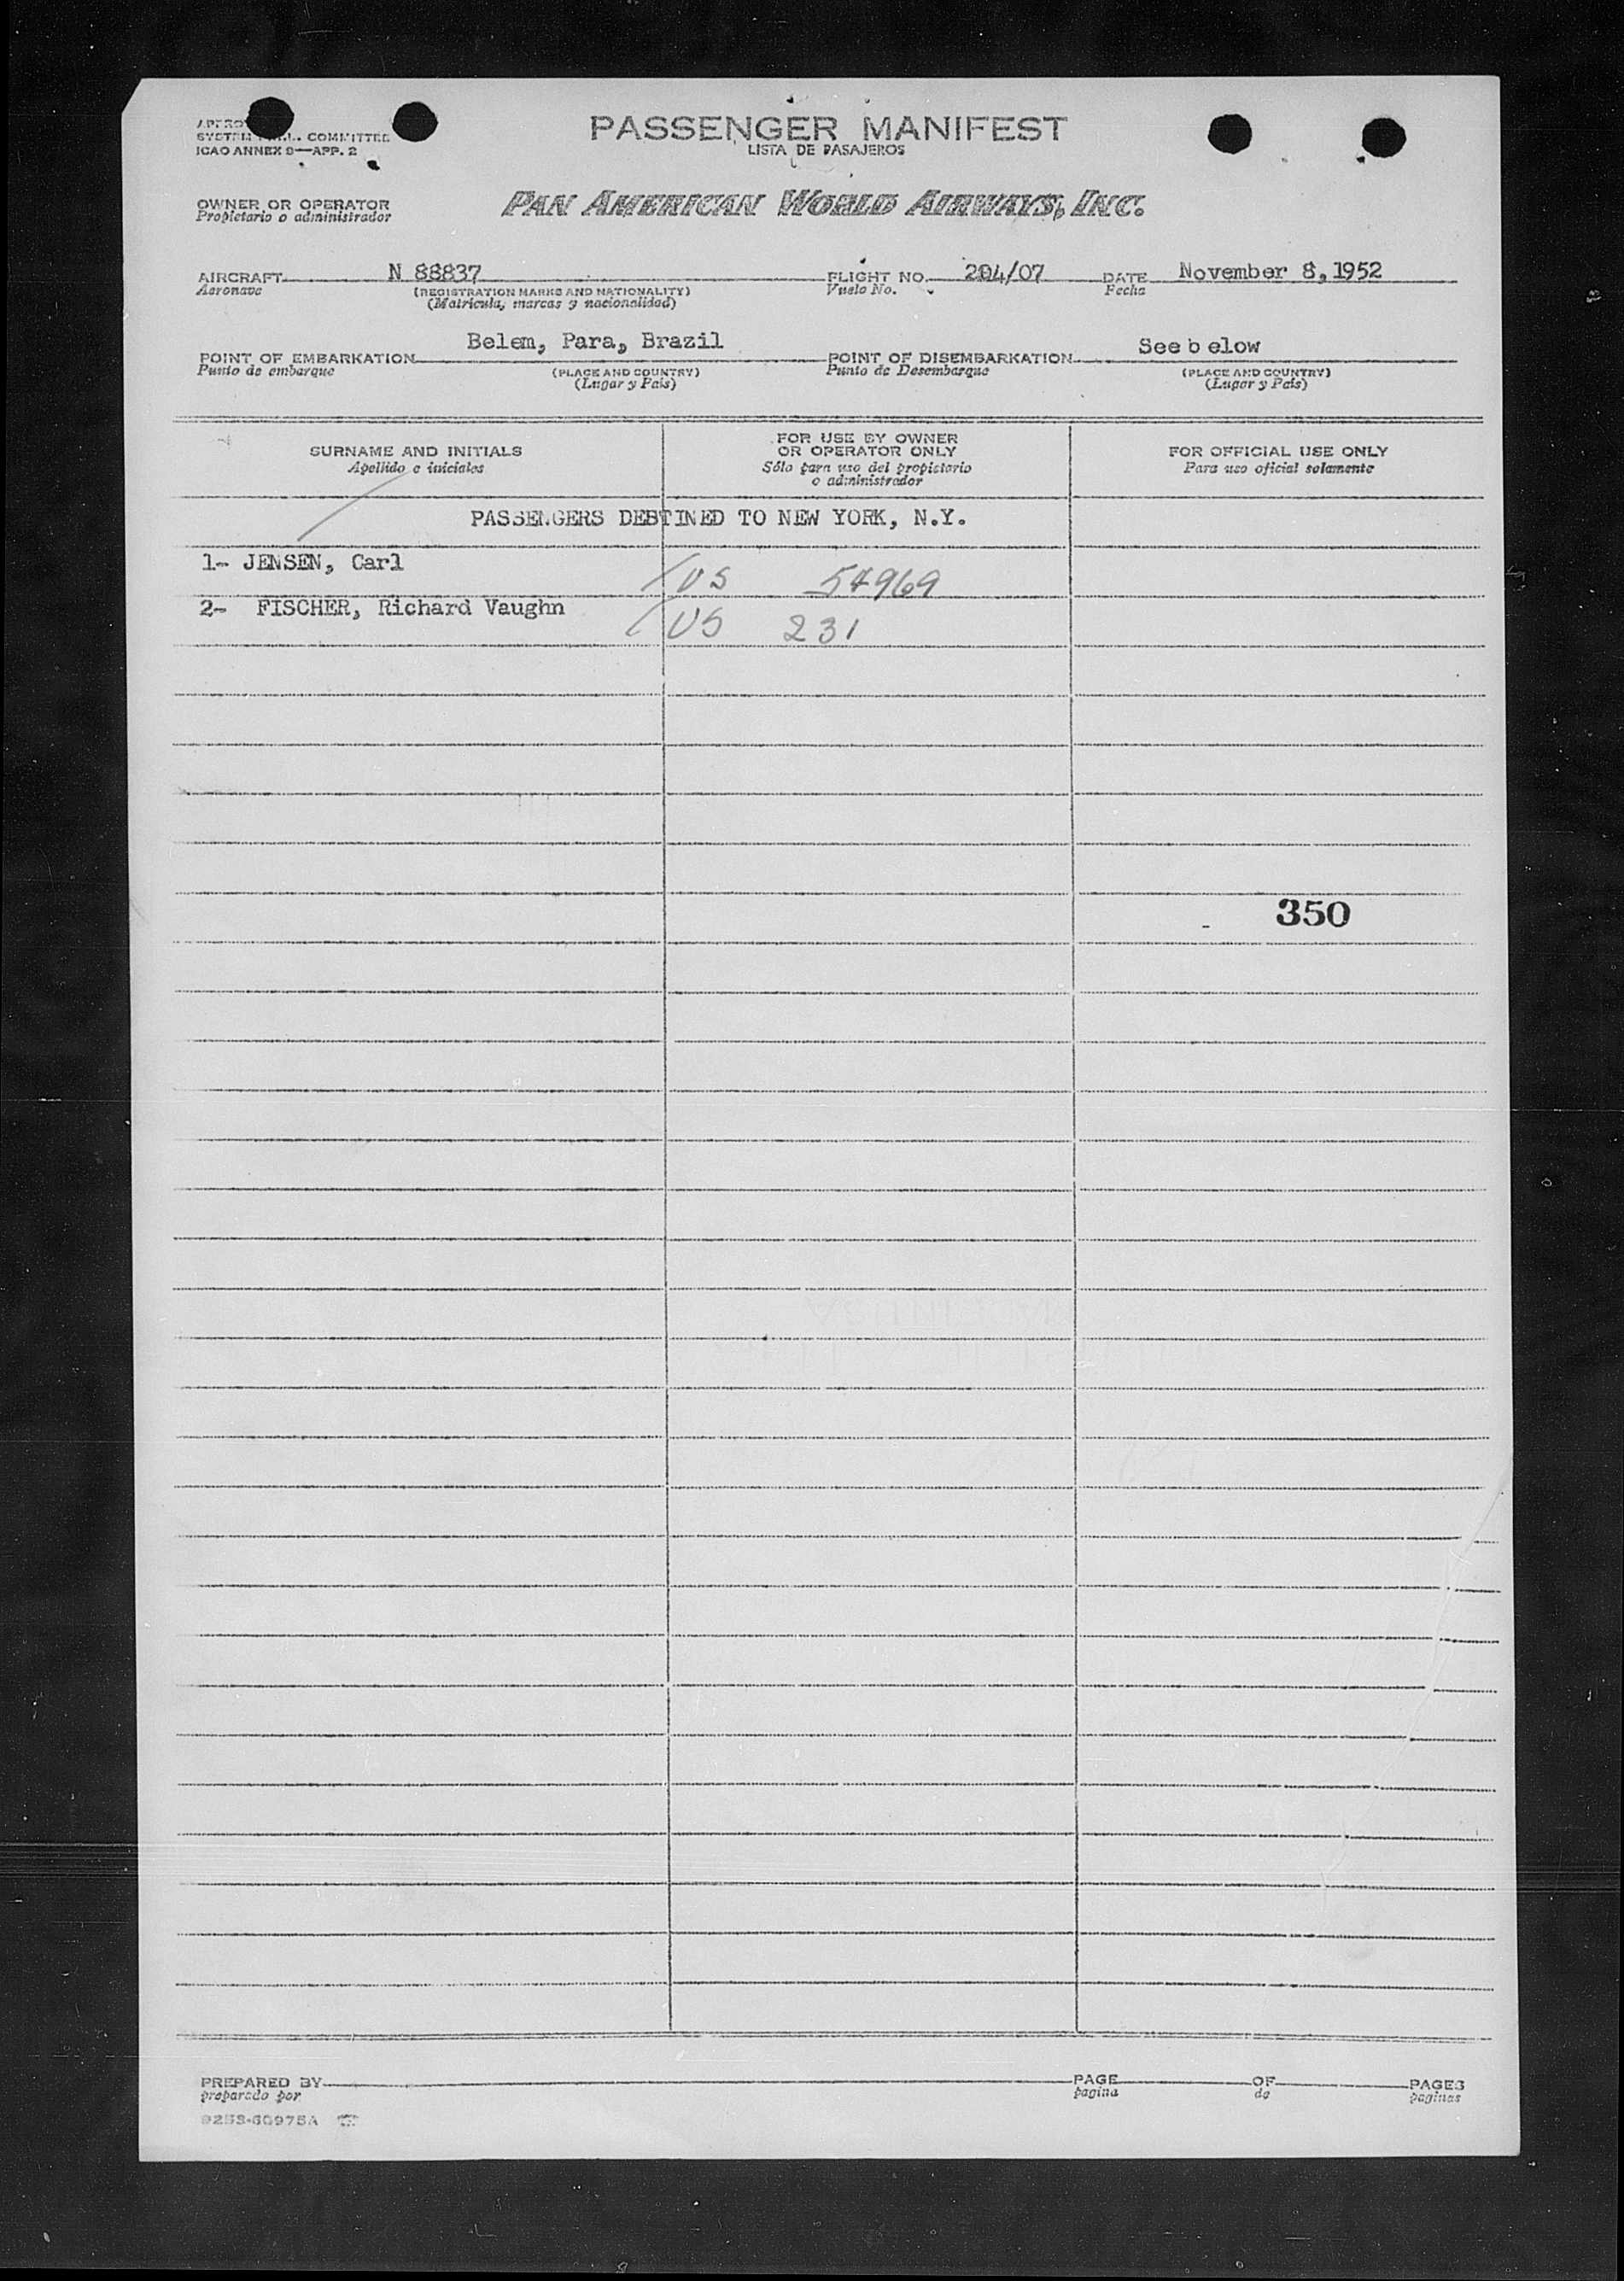 SYSTEM COMMITTEE
ICAO ANNEX 9—APP. 2
PASSENGER MANIFEST
LISTA DE PASAJEROS
OWNER OR OPERATOR
Propietario o administrador
PAN AMERICAN WORLD AIRWAYS, INC.
AIRCRAFT N 88837 FLIGHT NO. 204/07 DATE November 8, 1952
Aeronave (REGISTRATION MARKS AND NATIONALITY) Vuelo No. Fecha
(Matricula, marcas y nacionalidad)
POINT OF EMBARKATION Belem, Para, Brazil POINT OF DISEMBARKATION See b elow
Punto de embarque (PLACE AND COUNTRY) Punto de Desembarque (PLACE AND COUNTRY)
(Lugar y País) (Lugar y País)
SURNAME AND INITIALS
Apellido e iniciales
FOR USE BY OWNER
OR OPERATOR ONLY
Sólo para uso del propietario
o administrador
FOR OFFICIAL USE ONLY
Para uso oficial solamente
PASSENGERS DEBTINED TO NEW YORK, N.Y.
1- JENSEN, Carl US 54969
2- FISCHER, Richard Vaughn US 231
350
PREPARED BY PAGE OF PAGES
preparado por pagina de paginas